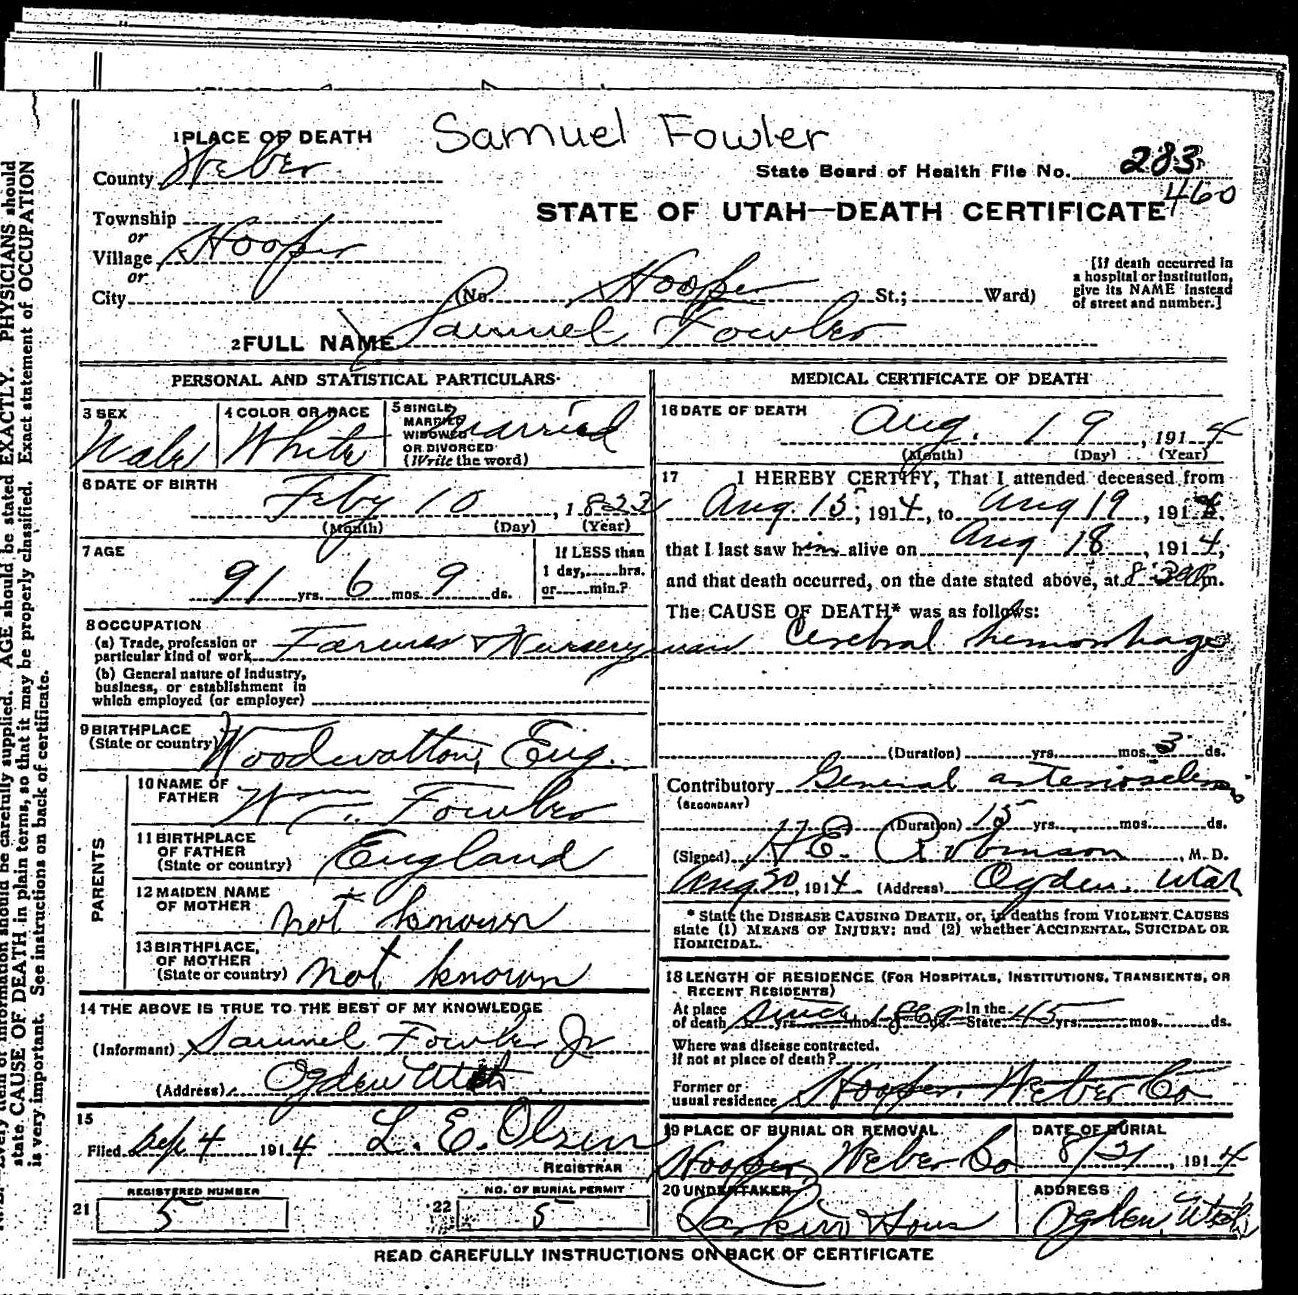 Samuel Fowler
1 PLACE OF DEATH
County Weber
State Board of Health File No. 283
460
Township
or
Village Hooper
or
City (No. Hooper St.; Ward)
STATE OF UTAH—DEATH CERTIFICATE
[If death occurred in
a hospital or institution,
give its NAME instead
of street and number.]
2 FULL NAME Samuel Fowler
PERSONAL AND STATISTICAL PARTICULARS
3 SEX
Male
4 COLOR OR RACE
White
5 SINGLE
MARRIED
WIDOWED
OR DIVORCED
(Write the word)
Married
6 DATE OF BIRTH
Feby 10, 1823
(Month) (Day) (Year)
7 AGE
91 yrs. 6 mos. 9 ds.
If LESS than
1 day,......hrs.
or......min.?
8 OCCUPATION
(a) Trade, profession or
particular kind of work Farmer & Nurseryman
(b) General nature of industry,
business, or establishment in
which employed (or employer)
9 BIRTHPLACE
(State or country) Woodwalton, Eng.
PARENTS
10 NAME OF
FATHER Wm Fowler
11 BIRTHPLACE
OF FATHER
(State or country) England
12 MAIDEN NAME
OF MOTHER not known
13 BIRTHPLACE,
OF MOTHER
(State or country) not known
14 THE ABOVE IS TRUE TO THE BEST OF MY KNOWLEDGE
(Informant) Samuel Fowler Jr
(Address) Ogden Utah
15
Filed Sep 4 1914 L. E. Olsen
REGISTRAR
REGISTERED NUMBER
21 5
NO. OF BURIAL PERMIT
22 5
MEDICAL CERTIFICATE OF DEATH
16 DATE OF DEATH
Aug. 19, 1914
(Month) (Day) (Year)
17 I HEREBY CERTIFY, That I attended deceased from
Aug. 15, 1914, to Aug 19, 1914,
that I last saw him alive on Aug 18, 1914,
and that death occurred, on the date stated above, at 8:30 P.m.
The CAUSE OF DEATH* was as follows:
Cerebral hemorrhage
(Duration) yrs. mos. 3 ds.
Contributory General arteriosclerosis
(SECONDARY)
(Duration) 15 yrs. mos. ds.
(Signed) H. E. Robinson, M. D.
Aug 20, 1914 (Address) Ogden, Utah
* State the DISEASE CAUSING DEATH, or, in deaths from VIOLENT CAUSES
state (1) MEANS OF INJURY; and (2) whether ACCIDENTAL, SUICIDAL OR
HOMICIDAL.
18 LENGTH OF RESIDENCE (FOR HOSPITALS, INSTITUTIONS, TRANSIENTS, OR
RECENT RESIDENTS)
At place
of death since 1869 yrs. mos. ds. In the
State 45 yrs. mos. ds.
Where was disease contracted.
If not at place of death?
Former or
usual residence Hooper, Weber Co
19 PLACE OF BURIAL OR REMOVAL
Hooper Weber Co
DATE OF BURIAL
8/21, 1914
20 UNDERTAKER
Larkin & Sons
ADDRESS
Ogden, Utah
READ CAREFULLY INSTRUCTIONS ON BACK OF CERTIFICATE
information should be carefully supplied. AGE should be stated EXACTLY. PHYSICIANS should
state CAUSE OF DEATH in plain terms, so that it may be properly classified. Exact statement of OCCUPATION
is very important. See instructions on back of certificate.